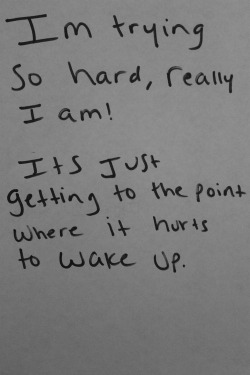 Im trying
So hard, really
I am!
Its Just
getting to the point
where it hurts
to wake up.